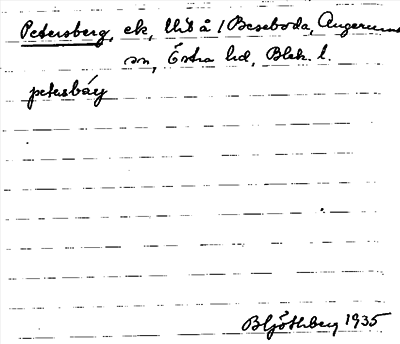 Petersberg, ek, Utb å 1 Beseboda, Augerums
sn, Östra hd, Blek. l.
petesbáy
B Ljöthberg 1935